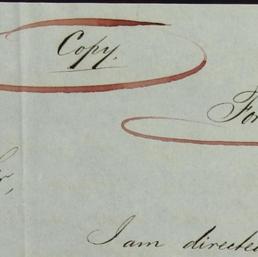 Copy.
I am directed